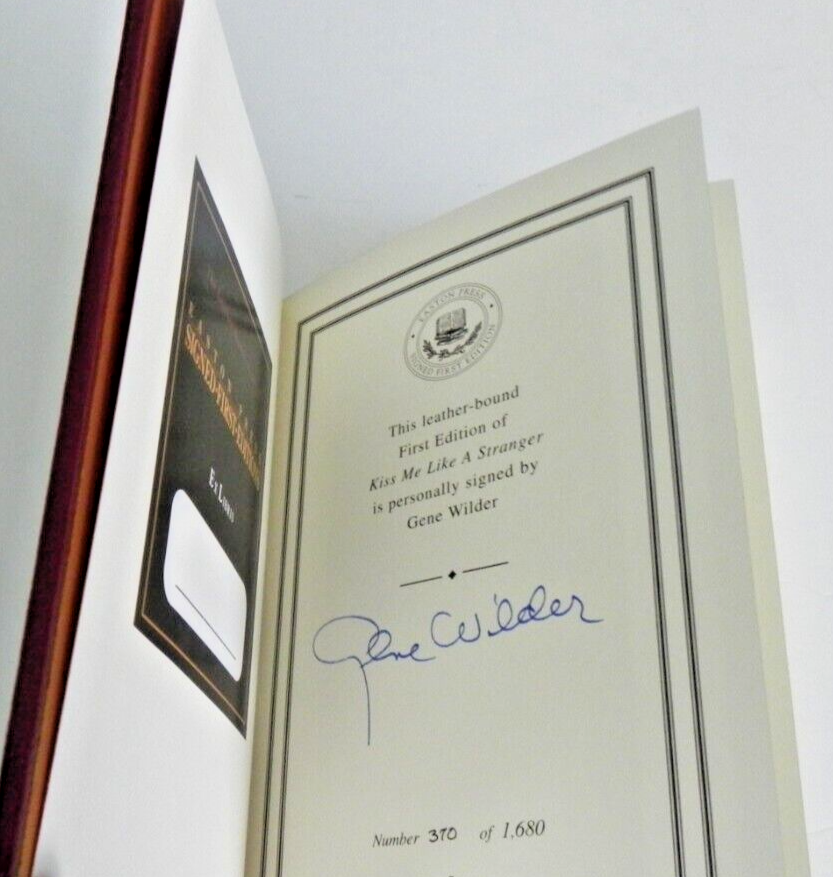 EASTON PRESS
SIGNED FIRST EDITION
EX LIBRIS
EASTON PRESS
SIGNED FIRST EDITION
This leather-bound
First Edition of
Kiss Me Like A Stranger
is personally signed by
Gene Wilder
Gene Wilder
Number 370 of 1,680